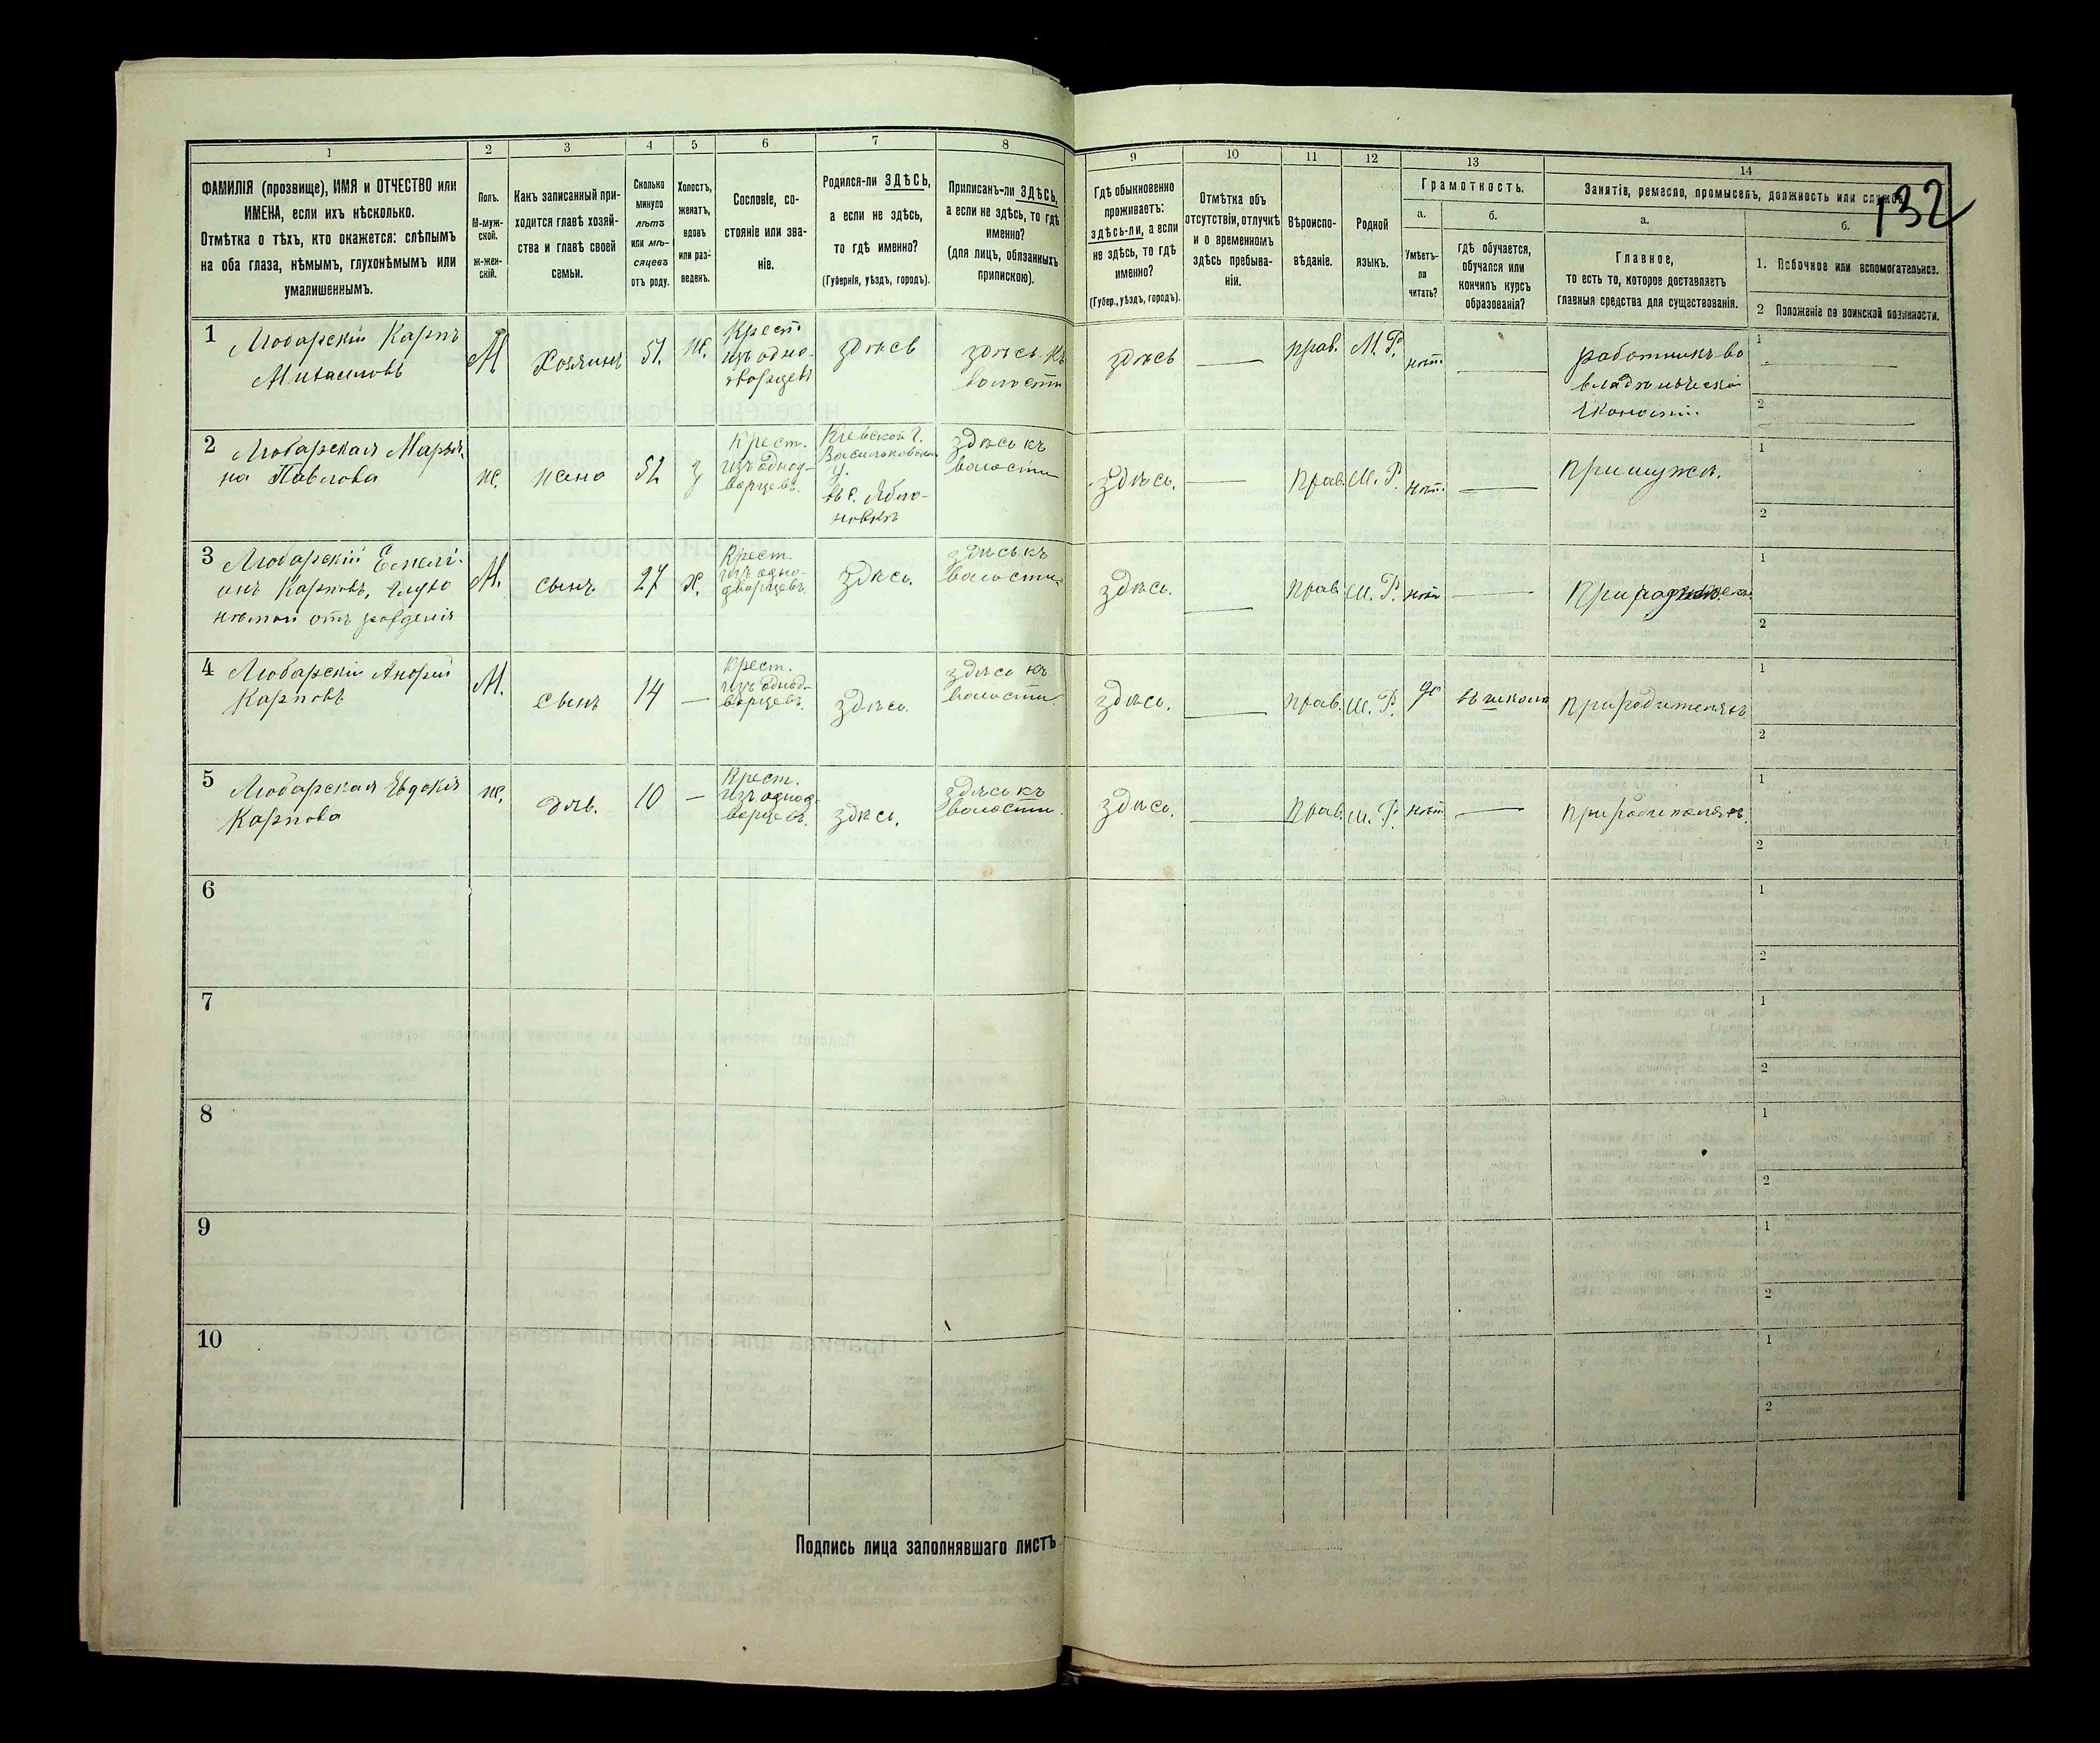 132
1 2 3 4 5 6 7 8 9 10 11 12 13 14
ФАМИЛІЯ (прозвище), ИМЯ и ОТЧЕСТВО или
ИМЕНА, если ихъ нѣсколько.
Отмѣтка о тѣхъ, кто окажется: слѣпымъ
на оба глаза, нѣмымъ, глухонѣмымъ или
умалишеннымъ.
Полъ.
М-муж-
ской.
Ж-жен-
скій.
Какъ записанный при-
ходится главѣ хозяй-
ства и главѣ своей
семьи.
Сколько
минуло
лѣтъ
или мѣ-
сяцевъ
отъ роду.
Холостъ,
женатъ,
вдовъ
или раз-
веденъ.
Сословіе, со-
стояніе или зва-
ніе.
Родился-ли ЗДѢСЬ,
а если не здѣсь,
то гдѣ именно?
(Губернія, уѣздъ, городъ).
Приписанъ-ли ЗДѢСЬ,
а если не здѣсь, то гдѣ
именно?
(для лицъ, обязанныхъ
припискою).
Гдѣ обыкновенно
проживаетъ:
здѣсь-ли, а если
не здѣсь, то гдѣ
именно?
(Губер., уѣздъ, городъ).
Отмѣтка объ
отсутствіи, отлучкѣ
и о временномъ
здѣсь пребыва-
ніи.
Вѣроиспо-
вѣданіе.
Родной
языкъ.
Грамотность.
а.
Умѣетъ-
ли
читать?
б.
гдѣ обучается,
обучался или
кончилъ курсъ
образованія?
Занятіе, ремесло, промыселъ, должность или служба.
а.
Главное,
то есть то, которое доставляетъ
главныя средства для существованія.
б.
1. Побочное или вспомогательное.
2 Положеніе по воинской повинности.
1 Любарскій Карпъ
Михайловъ
М
Хозяинъ
51.
ж.
Крест.
изъ одно-
дворцевъ
здѣсь
здѣсь къ
волости
здѣсь
—
прав.
М. Р.
нѣтъ
—
работникъ во
владѣльческой
экономіи.
1
2
2 Любарская Марья
Павлова
ж.
жена
52
з
Крест.
изъ однод-
ворцевъ.
Кіевской г.
Васильковскаго
у.
въ с. Ябло-
новкѣ
здѣсь къ
волости
здѣсь.
—
Прав.
М. Р.
нѣтъ
—
При мужѣ.
1
2
3 Любарскій Емелі-
анъ Карповъ, глухо
нѣмой отъ рожденія
М.
сынъ
27
х.
Крест.
изъ одно-
дворцевъ.
здѣсь.
здѣсь къ
волости
здѣсь.
—
Прав.
М. Р.
нѣтъ
—
При
1
2
4 Любарскій Андрей
Карповъ
М.
сынъ
14
—
Крест.
изъ однод-
ворцевъ.
здѣсь.
здѣсь къ
волости
здѣсь.
—
Прав.
М. Р.
да
въ школѣ
При родителяхъ
1
2
5 Любарская Евдокія
Карпова
ж.
дочь.
10
—
Крест.
изъ однод-
ворцевъ.
здѣсь.
здѣсь къ
волости.
здѣсь.
—
Прав.
М. Р.
нѣтъ
—
При родителяхъ.
1
2
6
1
2
7
1
2
8
1
2
9
1
2
10
1
2
Подпись лица заполнявшаго листъ